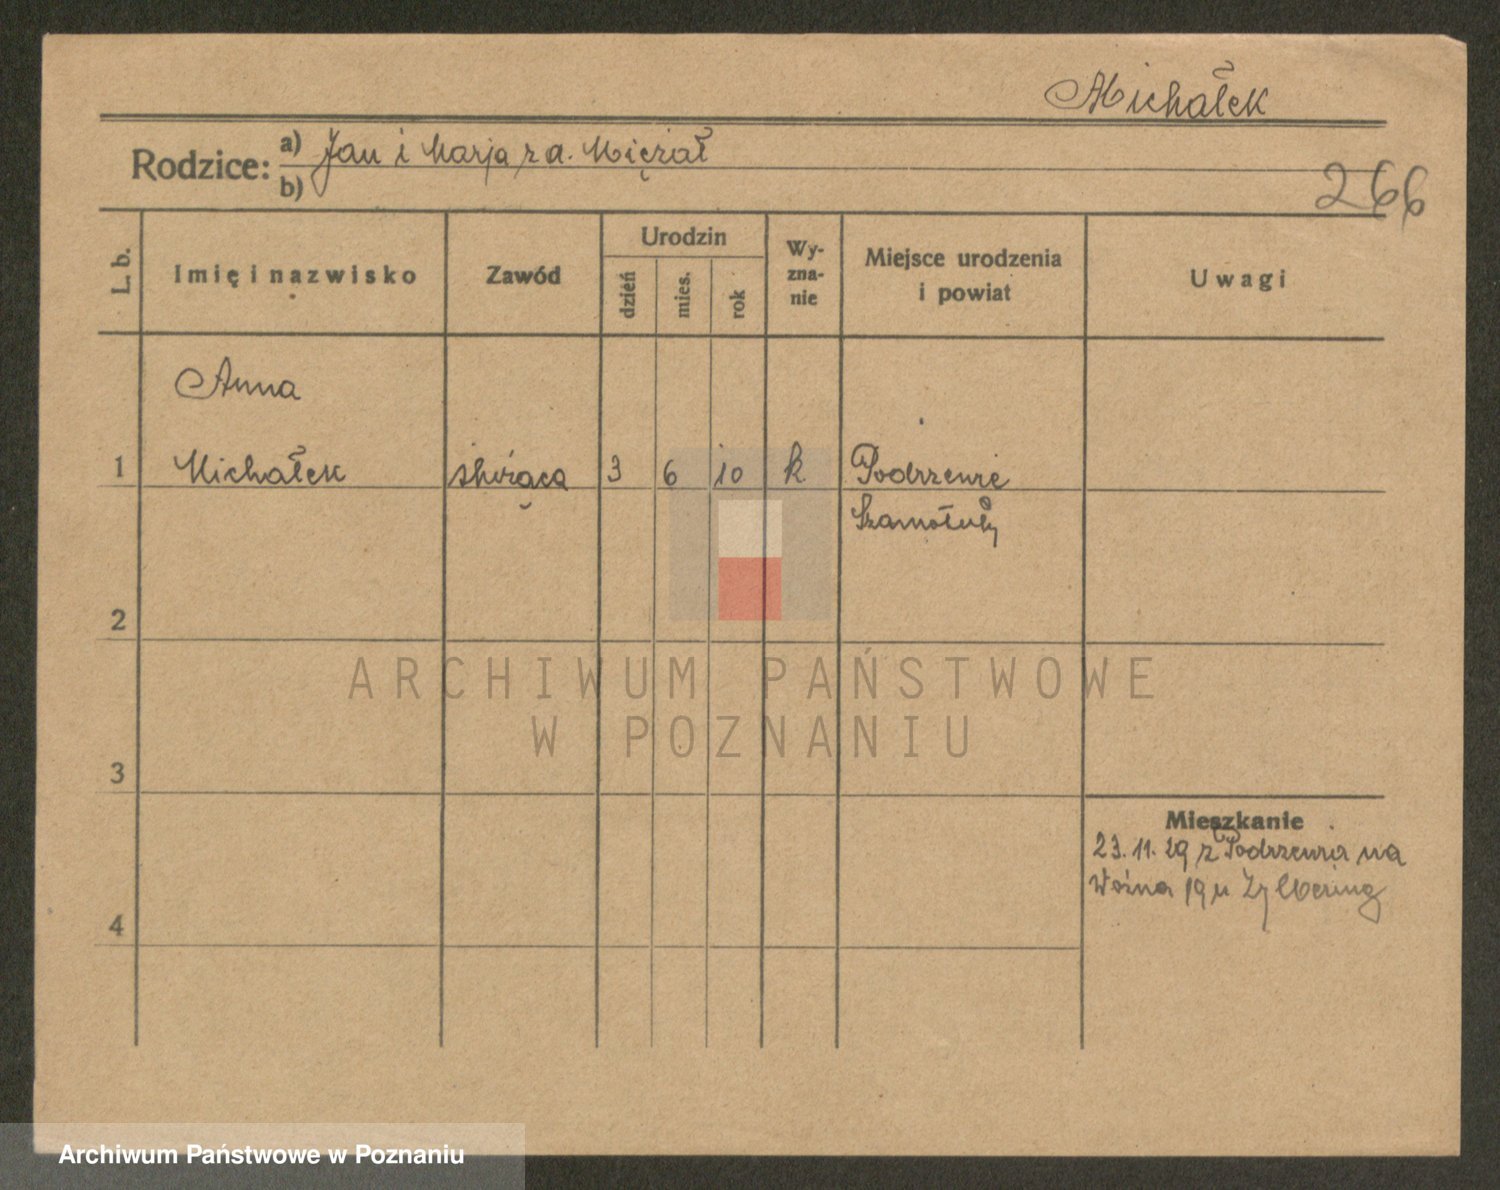 Michałek
Rodzice: a) Jan i Marja z d. Mięział
b)
266
L. b.
Imię i nazwisko
Zawód
Urodzin
dzień
mies.
rok
Wy-
zna-
nie
Miejsce urodzenia
i powiat
Uwagi
Anna
1 Michałek służąca 3 6 10 k Podrzewie
Szamotuły
2
ARCHIWUM PAŃSTWOWE
W POZNANIU
3
Mieszkanie
23. 11. 29 z Podrzewia na
Woźna 19 u Zylbering
4
Archiwum Państwowe w Poznaniu